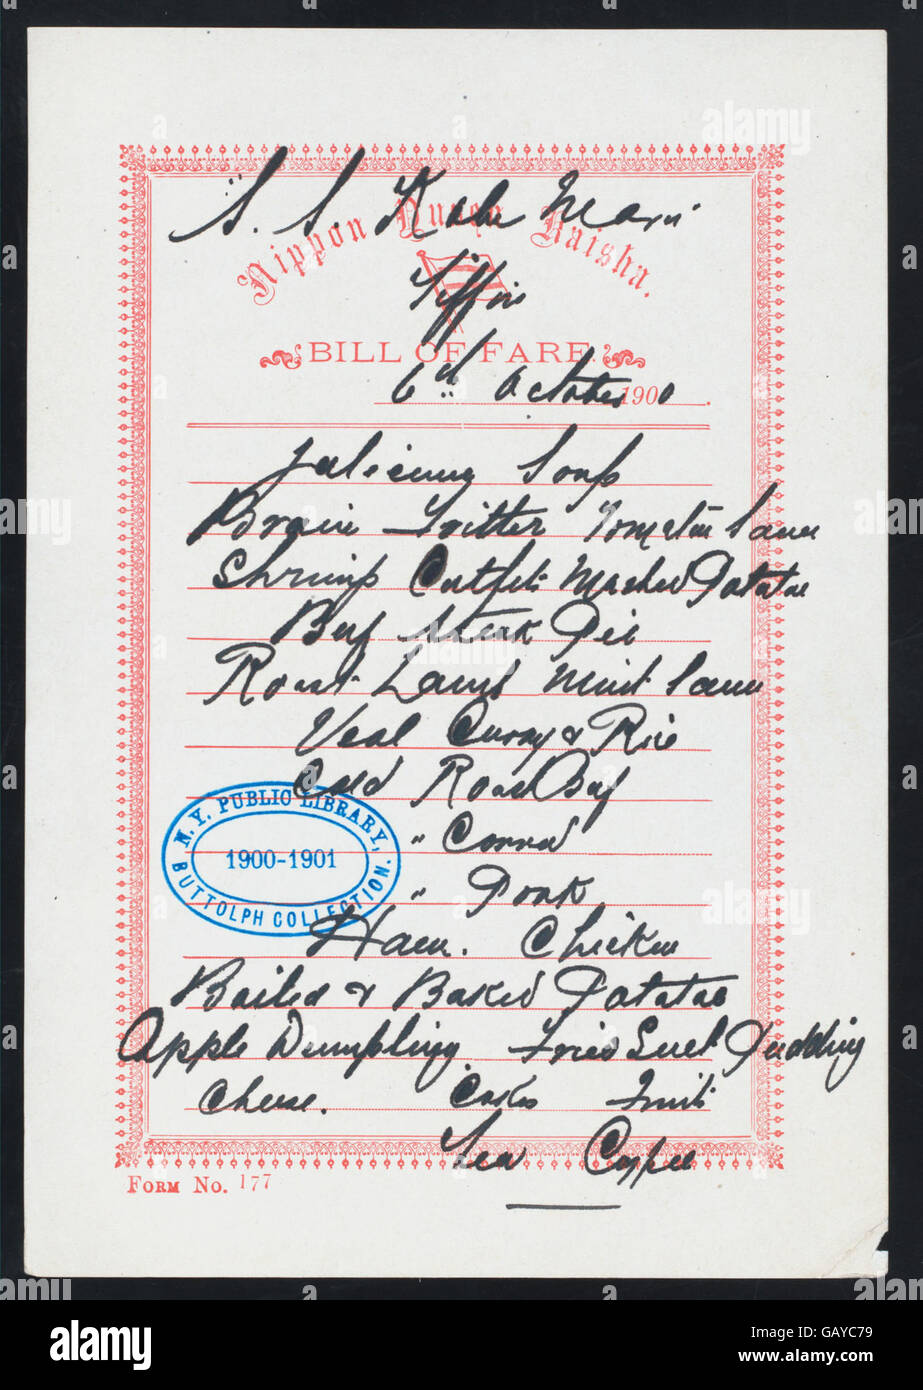 S. S. Kobe Maru
Nippon Yusen Kaisha.
Tiffin
BILL OF FARE
6d October 1900.
Julienne Soup
Brain Fritter Tomatoe Sauce
Shrimp Cutlets Mashed Potatoe
Beef Steak Pie
Roast Lamb Mint Sauce
Veal Curry & Rice
Cold Roast Beef
N.Y. PUBLIC LIBRARY,
1900-1901
BUTTOLPH COLLECTION.
" Corned
" Pork
Ham. Chicken
Boiled & Baked Potatoe
Apple Dumpling Fried Suet Pudding
Cheese. Cakes Fruit
Tea Coffee
FORM NO. 177
alamy
alamy
GAYC79
www.alamy.com